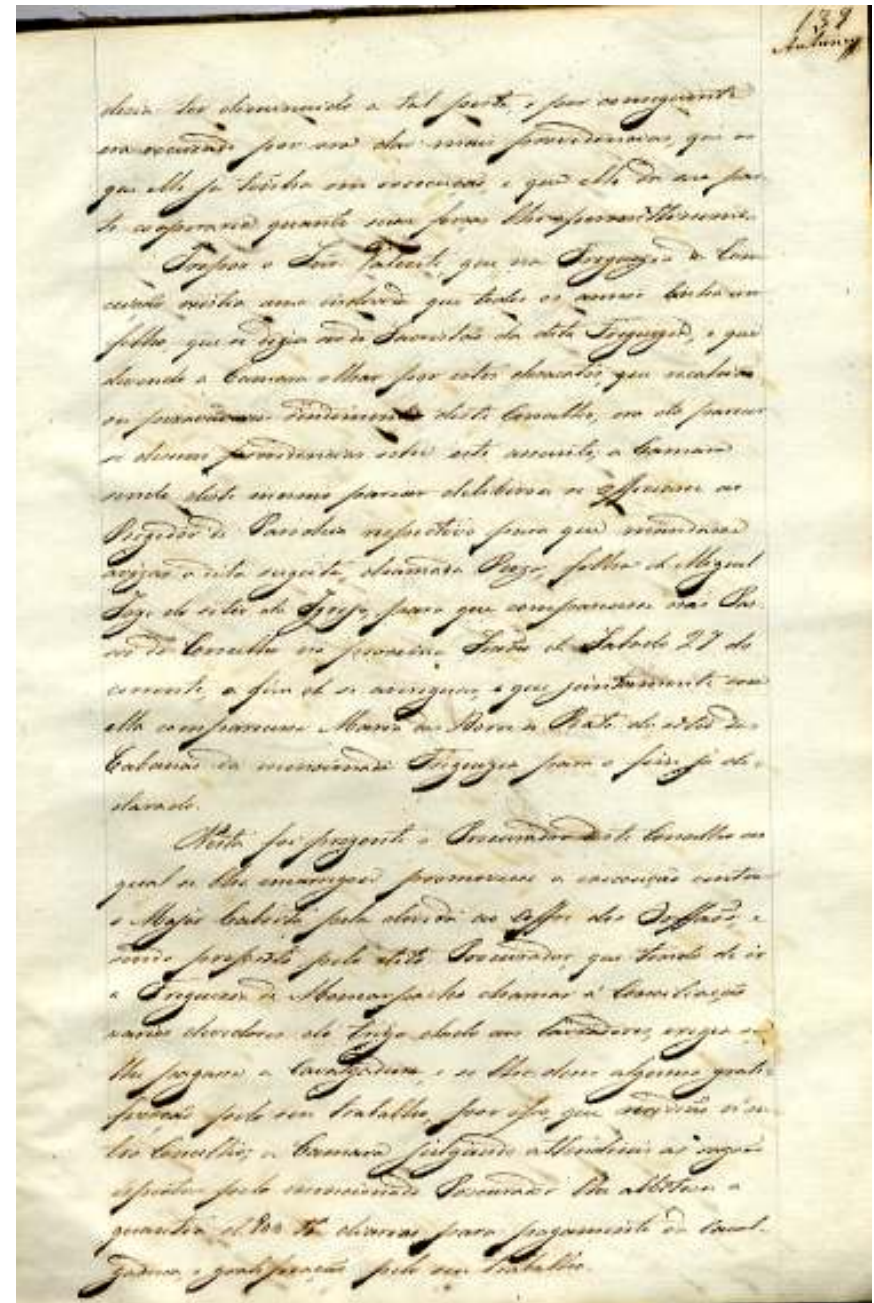 139
Antunes
dizia ter diminuido a tal peste, e por conseguinte
era escuzado por ora dar mais providencias, que as
que elle já tinha em execucao, e que elle da sua par-
te cooperaria quanto suas forças lhe permittissem.
Propos o Snr. Valente, que na Freguezia da Con-
ceição existia uma que todos os annos tinha um
filho, que se dizia ser do Sacristão da dita Freguezia, e que
devendo a Camara olhar por estes, que
rendimento deste Concelho, era de parecer
se dessem providencias sobre este assumpto; a Camara
sendo deste mesmo parecer deliberou se officiasse ao
Regedor de Parochia respectivo para que mandasse
avizar a dita sugeita, chamada, filha de Miguel
Joze do sitio da Igreja, para que comparecesse nos Pa-
ços do Concelho na proxima Sessão de Sabado 27 do
corrente, a fim de se averiguar, e que juntamente com
ella comparecesse Maria das do sitio das
Cabanas da mencionada Freguezia para o fim já de-
clarado.
Nesta foi prezente o Procurador deste Concelho ao
qual se lhe encarregou promovesse a execução contra
o Major pela divida ao Coffre dos Orffãos, e
sendo proposto pelo dito Procurador, que tendo de ir
a Freguezia de Moncarapacho chamar á Conciliação
varios devedores do trigo dado aos Lavradores, se
lhe pagasse a Cavalgadura, e se lhe desse alguma grati-
ficação pelo seu trabalho, por isso, que
Concelho; a Camara julgando attendiveis as rasões
expostas pelo mencionado Procurador lhe a
quantia de 800 rs diarios para pagamento da caval-
gadura, e gratificação pelo seu trabalho.